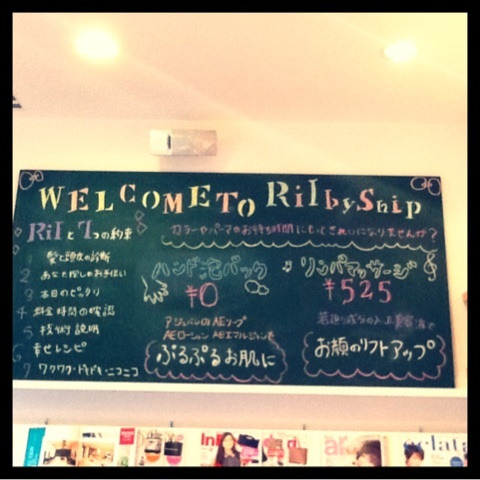 WELCOME TO RiI by Ship
RiIと7つの約束
1 髪と頭皮の診断
2 あなた探しのお手伝い
3 本日のピッタリ
4 料金時間の確認
5 技術説明
6 幸せレシピ
7 ワクワク・ドキドキ・ニコニコ
カラーやパーマのお待ち時間にもっときれいになりませんか?
ハンド泡パック
¥0
アジュバンのAEソープ
AEローション AEエマルジョンで
ぷるぷるお肌に
リンパマッサージ
¥525
お顔のリフトアップ
eclat